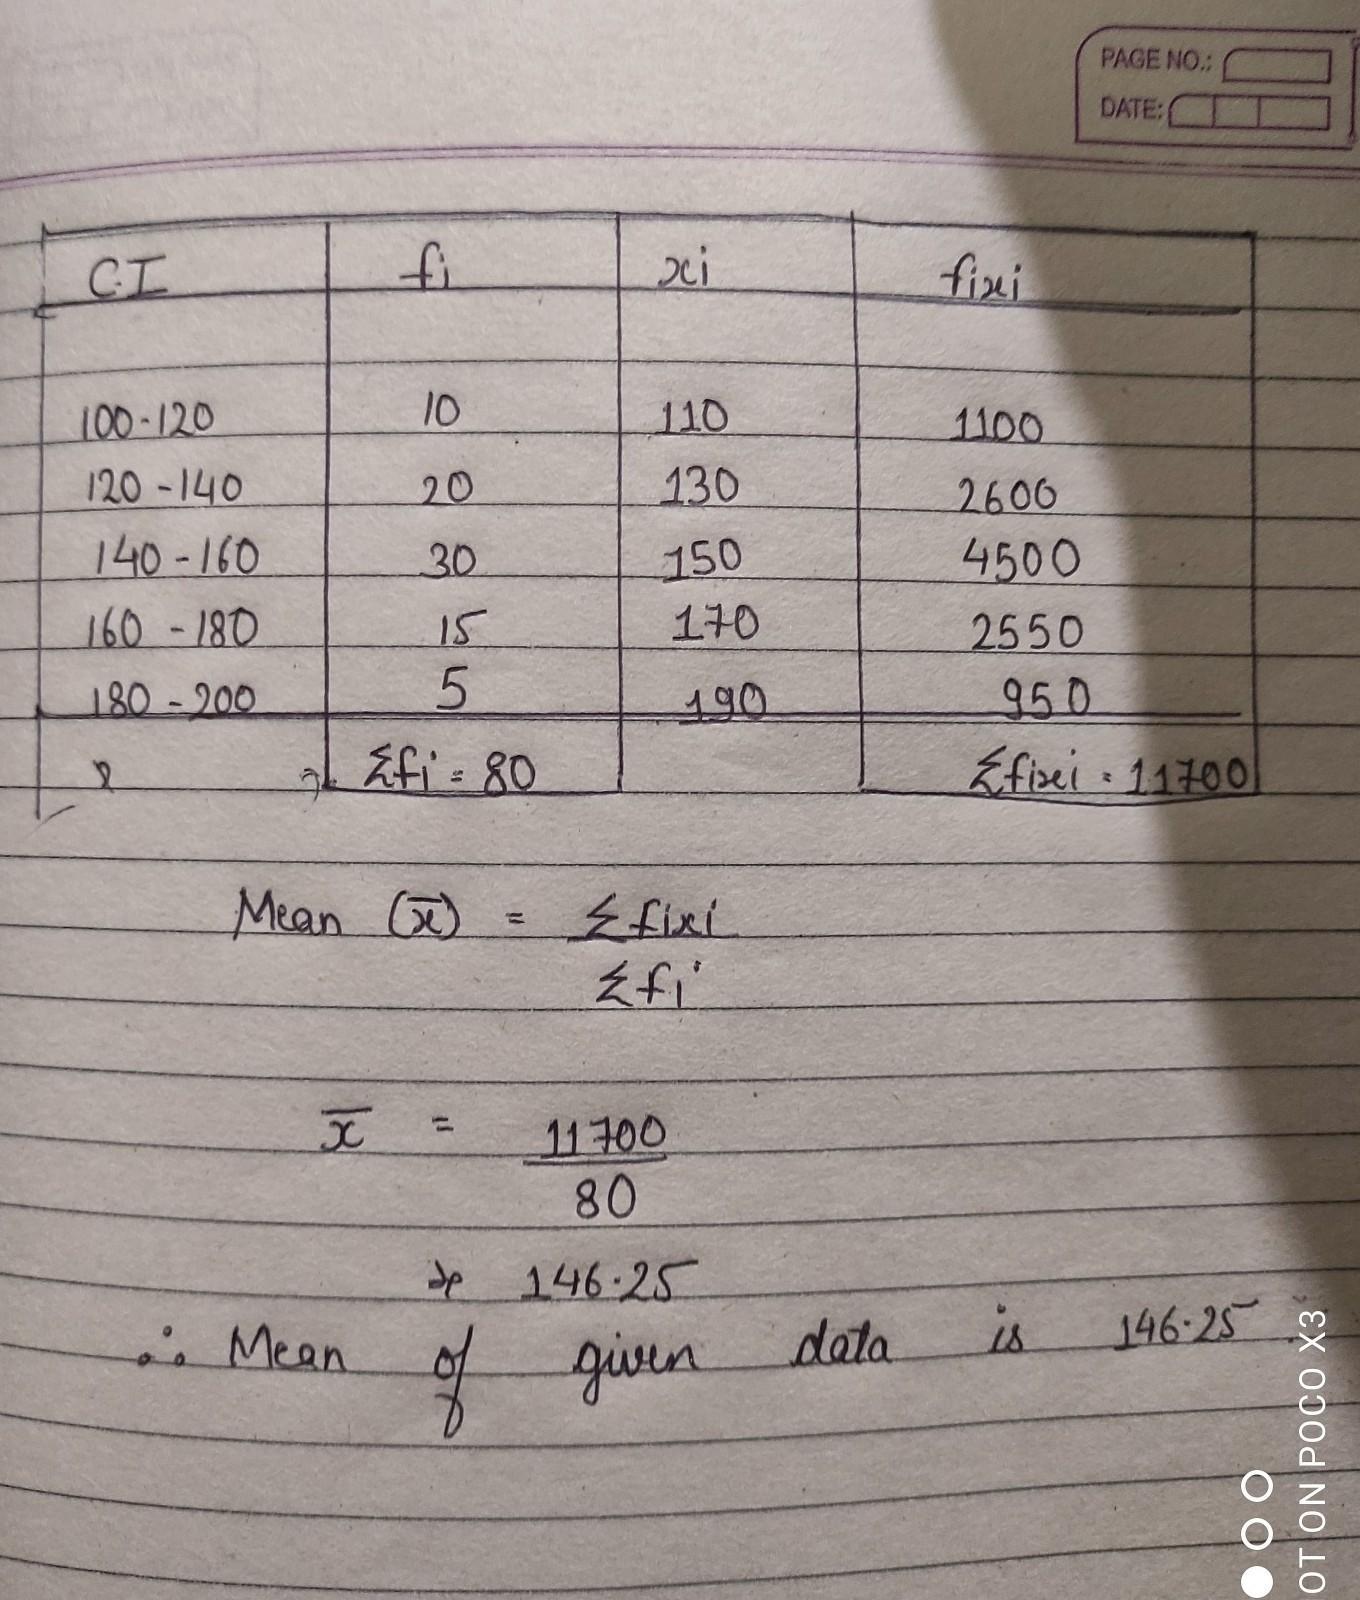 PAGE NO.:
DATE:
C.I fi xi fixi
100-120 10 110 1100
120-140 20 130 2600
140-160 30 150 4500
160-180 15 170 2550
180-200 5 190 950
Σfi = 80 Σfixi = 11700
Mean (x̄) = Σfixi
Σfi
x̄ = 11700
80
⇒ 146.25
∴ Mean of given data is 146.25
OT ON POCO X3